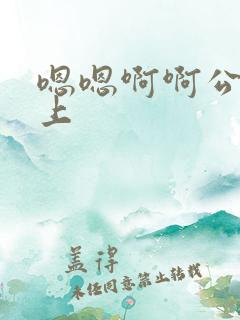 嗯嗯啊啊公
上
盖得
未经同意禁止转载